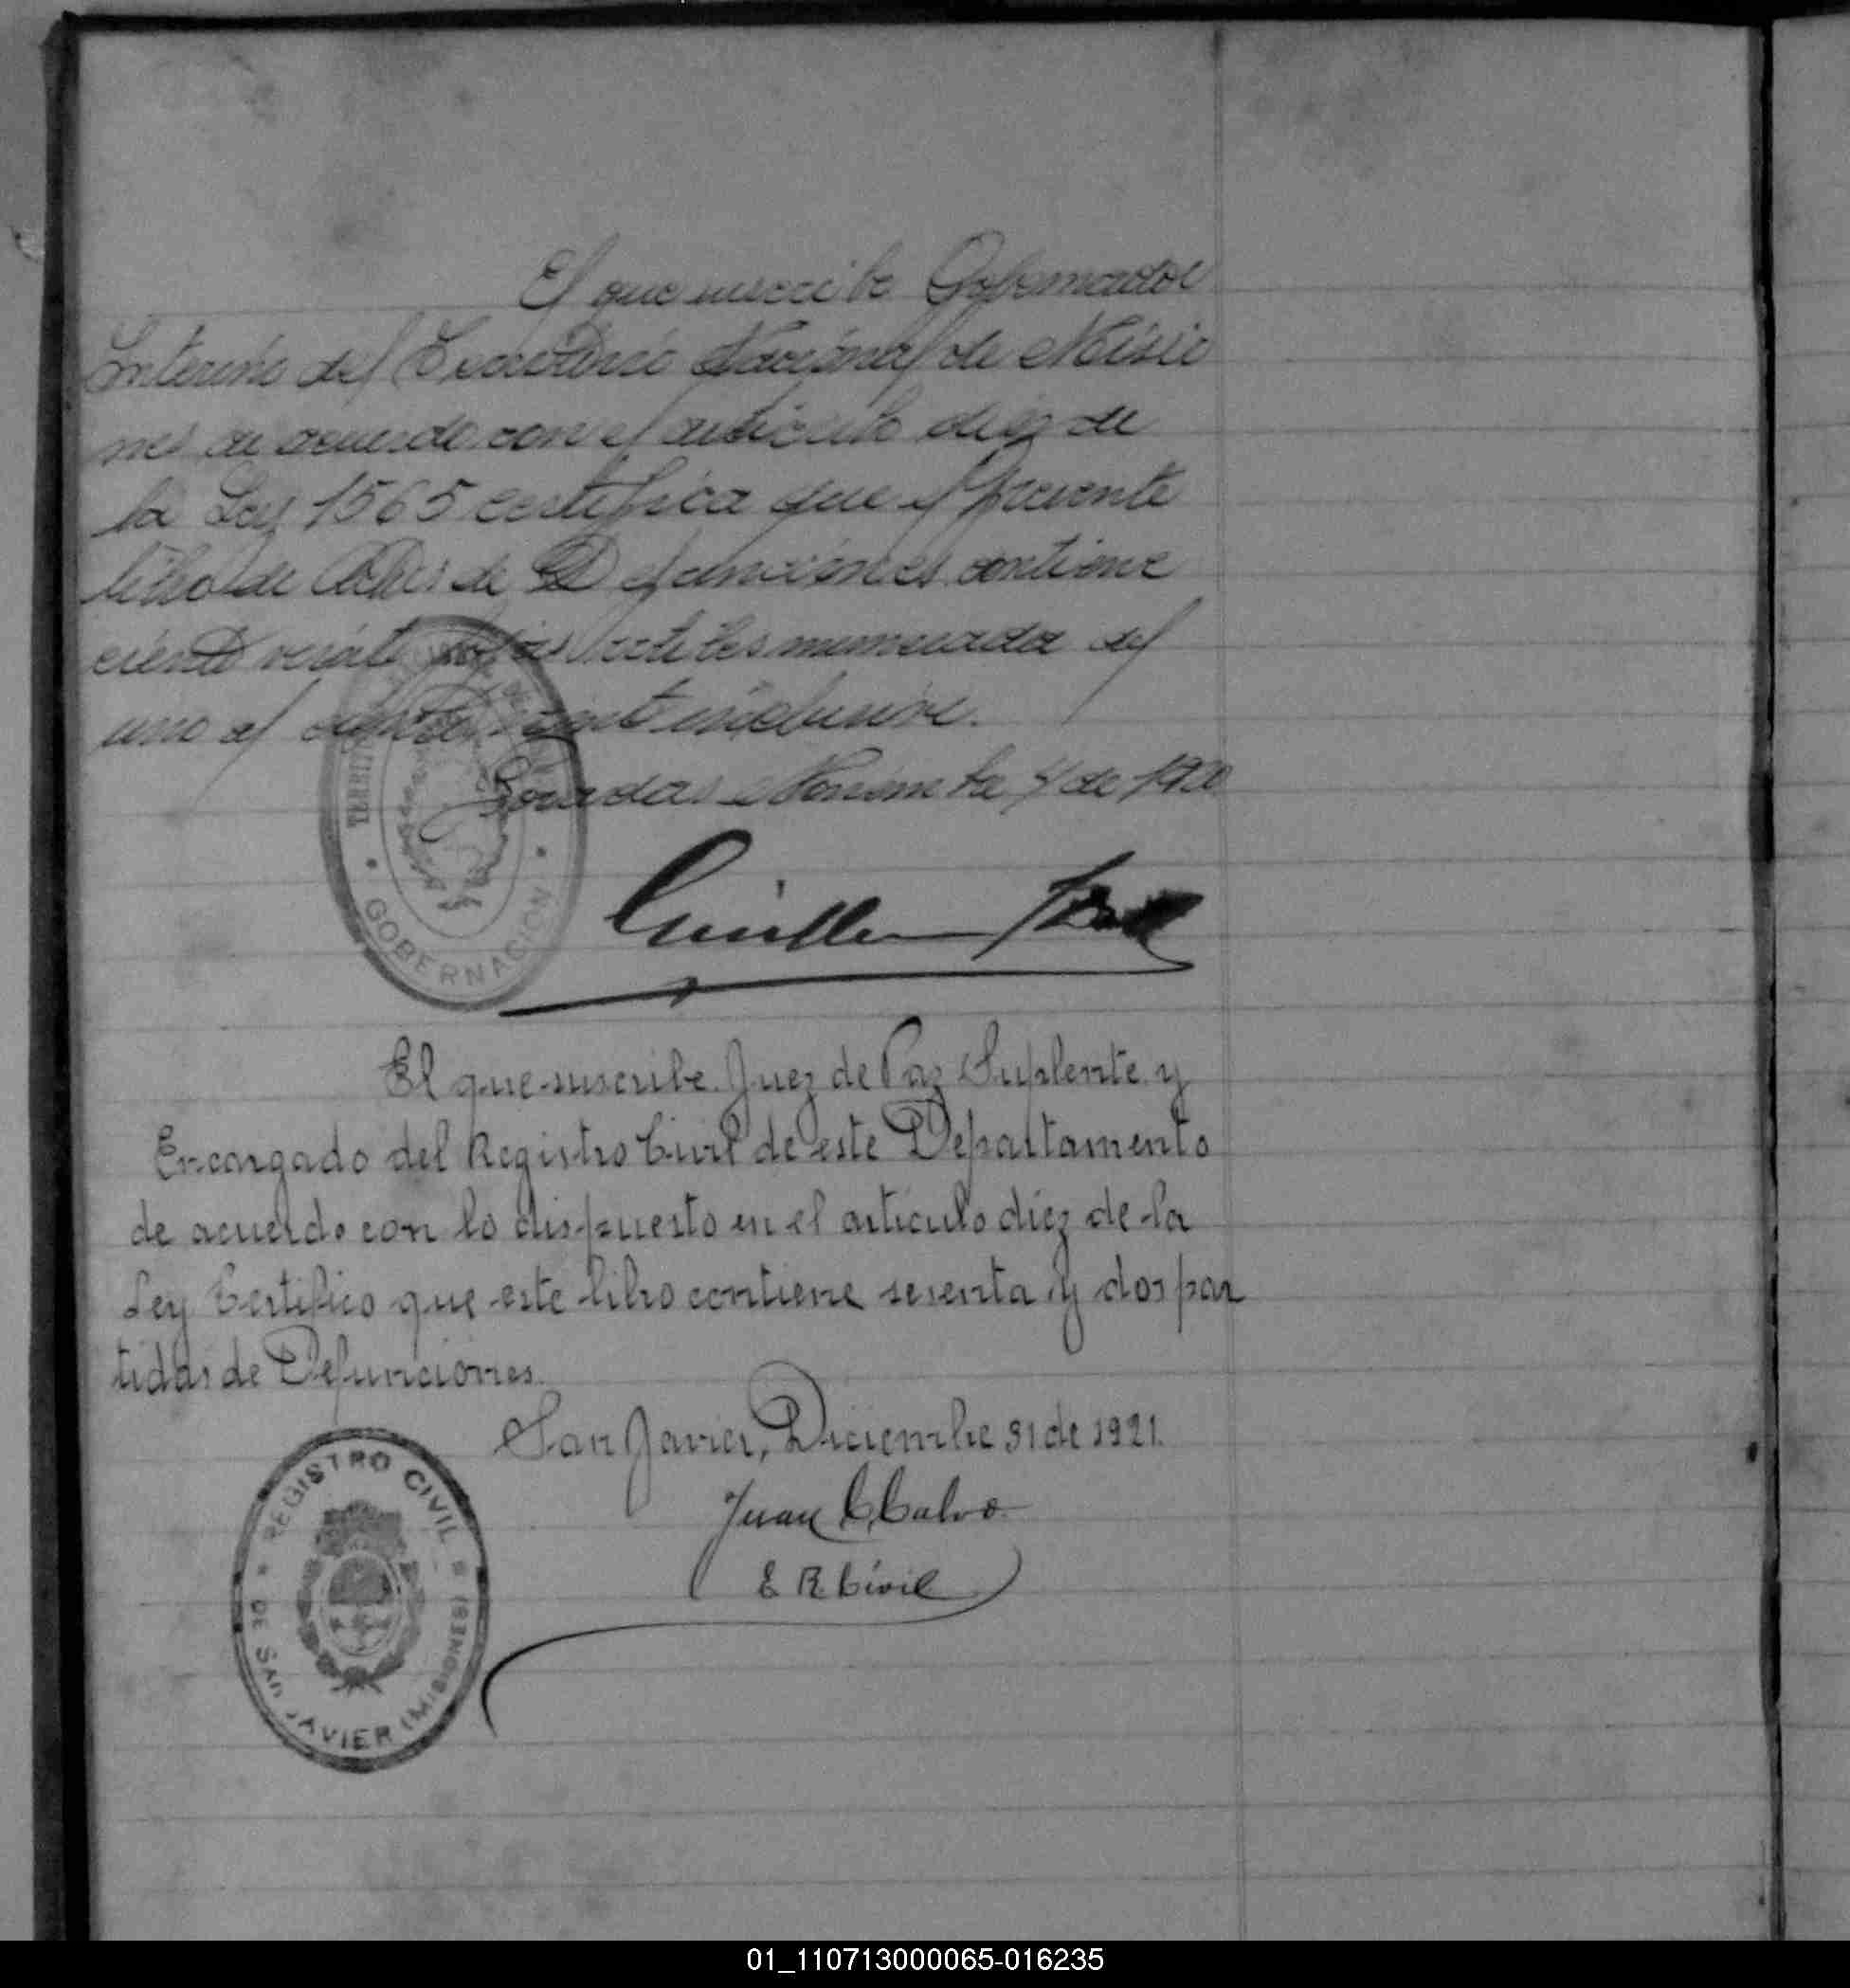 El que suscribe Gobernador
Interino del Territorio Nacional de Misio
nes de acuerdo con el articulo diez de
la Ley 1565 certifica que el presente
libro de Actas de Defunciones contiene
ciento veinte fojas utiles numerada del
uno al ciento veinte inclusive.
Posadas Noviembre 4 de 1920
GOBERNACION
El que suscribe Juez de Paz Suplente y
Encargado del Registro Civil de este Departamento
de acuerdo con lo dispuesto en el articulo diez de la
Ley Certifico que este libro contiene sesenta y dos par
tidas de Defunciones.
San Javier, Diciembre 31 de 1921.
Juan C Calvo
E R Civil
REGISTRO CIVIL
DE SAN JAVIER (MISIONES)
01_110713000065-016235